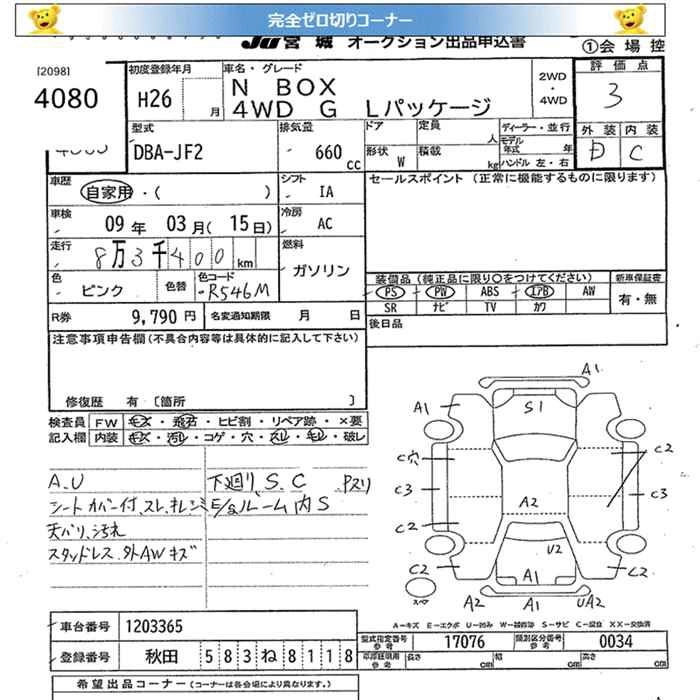 完全ゼロ切りコーナー
JU宮城 オークション出品申込書
①会場控
[2098]
4080
初度登録年月
H26 月
車名・グレード
N BOX
4WD G Lパッケージ
2WD
・
4WD
評価点
3
外装 内装
D C
型式
DBA-JF2
排気量
660 cc
ドア 定員 人
形状 W 積載 kg
ディーラー・並行
モデル年式 年
ハンドル 左・右
車歴
自家用・( )
シフト
IA
セールスポイント(正常に機能するものに限ります)
車検
09年 03月(15日)
冷房
AC
走行
8万3千400km
燃料
ガソリン
色
ピンク
色替
色コード
R546M
装備品(純正品に限り〇をつけてください)
新車保証書
PS PW ABS エアB AW
有・無
SR ナビ TV カワ
R券
9,790円
名変通知期限 月 日
後日品
注意事項申告欄(不具合内容等は具体的に記入して下さい)
修復歴 有 〔箇所 〕
検査員 FW キズ・飛石・ヒビ割・リペア跡・×要
記入欄 内装 キズ・汚れ・コゲ・穴・スレ・モレ・破レ
A.U 下廻り、S.C Pスリ
シートカバー付、スレ、キレ、シミ E/gルーム内S
天バリ、汚れ
スタッドレス、外AWキズ
A1
A1
S1
C穴
C2
C3
C3
A2
C2
U2
C2
C2
スペア
A2
A1
A1
UA2
A=キズ E=エクボ U=凹み W=補修跡 S=サビ C=腐食 XX=交換済
車台番号
1203365
型式指定番号 参考
17076
類別区分番号 参考
0034
登録番号
秋田 583ね8118
車庫証明用 参考
長さ cm
幅 cm
高さ cm
希望出品コーナー(コーナーは各会場により異なります。)